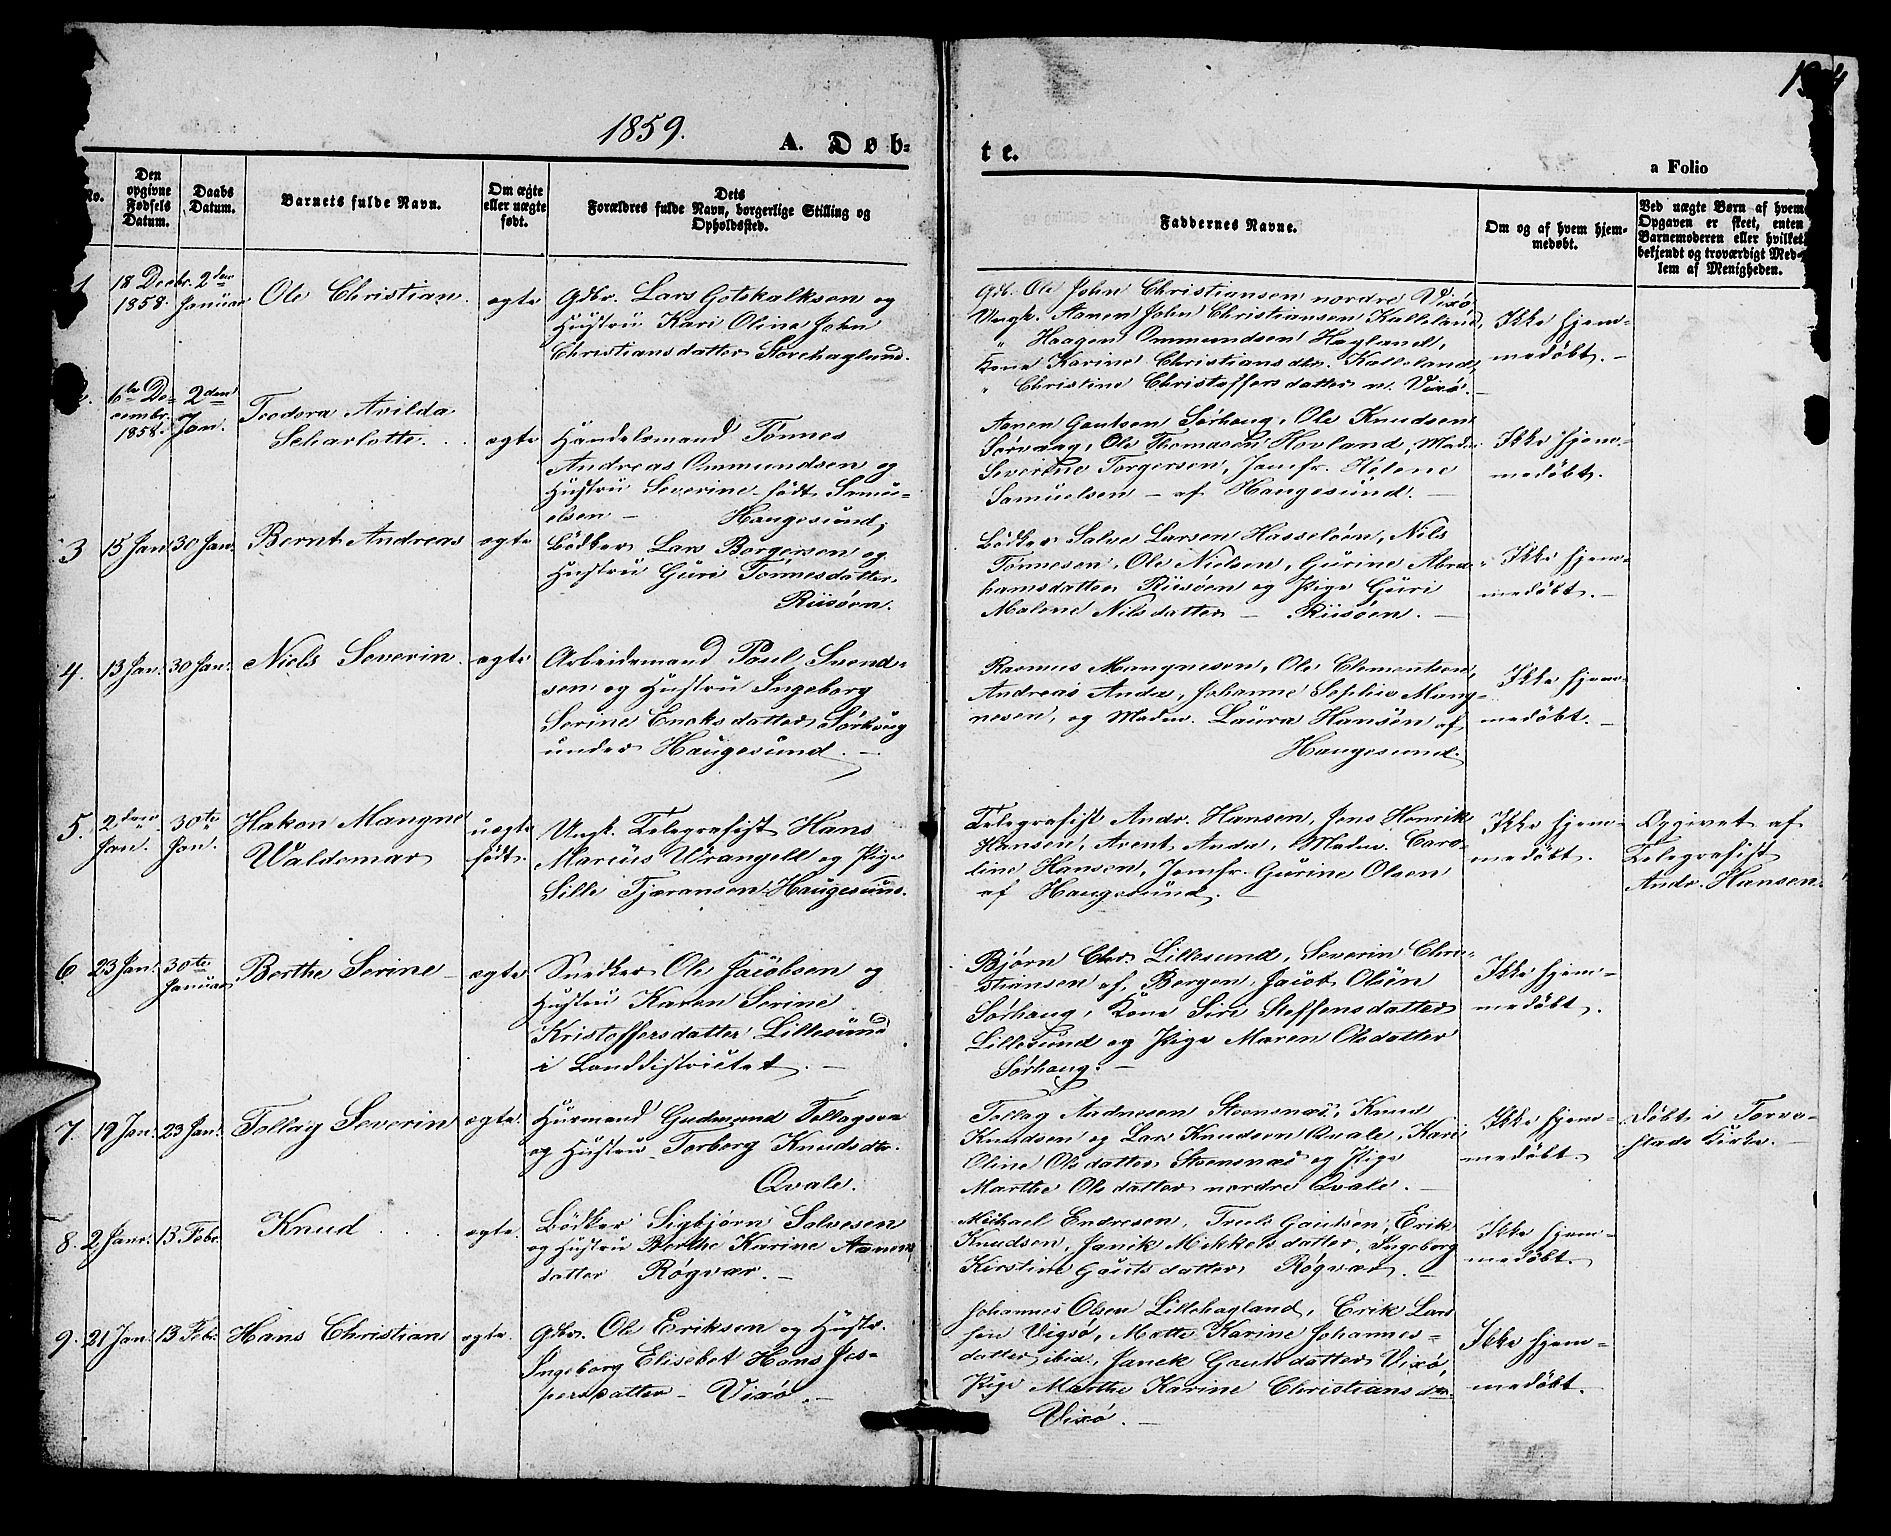 1859.
A. Døb-
te.
a Folio
No.
Den
opgivne
Fødsels
Datum.
Daabs
Datum.
Barnets fulde Navn.
Om ægte
eller uægte
født.
Dets
Forældres fulde Navn, borgerlige Stilling og
Opholdssted.
Faddernes Navne.
Om og af hvem hjem-
medøbt.
Ved uægte Børn af hvem
Opgaven er skeet, enten
Barnemoderen eller hvilket
bekjendt og troværdigt Med-
lem af Menigheden.
18 Decbr.
1858.
2den
Januar
Ole Christian.
ægte
Gdbr. Lars Gotskalksen og
Hustru Kari Oline John
Christiansdatter Storehagland.
Gdb. Ole John Christiansen nordre Vixø
Ungk. Aanen John Christiansen Kalleland,
" Haagen Ommundsen Hagland,
Kone Karine Christiansdtr. Kalleland,
" Christine Christoffersdatter n. Vixø.
Ikke hjem-
medøbt.
6te De-
cembr.
1858.
2den
Jan.
Teodora Avilda
Scharlotte.
ægte
Handelsmand Tønnes
Andreas Ommundsen og
Hustru Severine født Samu-
elsen - Haugesund,
Aanen Gautsen Sørhaug, Ole Knudsen
Sørvaag, Ole Thomasen Hovland, Mad.
Severine Torgersen, Jomfr. Helene
Samuelsen - af Haugesund.
Ikke hjem-
medøbt.
3
15 Jan.
30 Jan.
Bernt Andreas
ægte
Bødker Lars Borgersen og
Hustru Guri Tønnesdatter
Riisøen.
Bødker Salve Larsen Hasseløen, Nils
Tønnesen, Ole Nielsen, Gurine Abra-
hamsdatter Riisøen og Pige Guri
Malene Nilsdatter - Riisøen.
Ikke hjem-
medøbt.
4.
13 Jan.
30 Jan.
Niels Severin.
ægte
Arbeidsmand Poul Svend-
sen og Hustru Ingeborg
Serine Enoksdatter Sørhaug
under Haugesund.
Rasmus Mangnesen, Ole Clementsen,
Andreas Anda, Johanne Sophie Mang-
nesen, og Madm. Laura Hansen af
Haugesund.
Ikke hjem-
medøbt.
5.
2den
Jan.
30te
Jan.
Hakon Mangne
Valdemar
uægte
født.
Ungk. Telegrafist Hans
Marius Wrangell og Pige
Sille Tjøransen Haugesund.
Telegrafist Andr. Hansen, Jens Henrik
Hansen, Arent Anda, Madm. Caro-
line Hansen, Jomfr. Gurine Olsen
af Haugesund.
Ikke hjem-
medøbt.
Opgivet af
Telegrafist
Andr. Hansen.
6
23 Jan.
30te
Januar
Berthe Serine
ægte
Snedker Ole Jacobsen og
Hustru Karen Serine
Kristoffersdatter Lillesund
i Landdistrictet.
Bjørn Chr. Lillesund, Severin Chri-
stiansen af Bergen, Jacob Olsen
Sørhaug, Kone Siri Steffensdatter
Lillesund og Pige Maren Olsdatter
Sørhaug.
Ikke hjem-
medøbt.
7.
19 Jan.
23 Jan.
Tollag Severin
ægte.
Husmand Gudmund Tollagsen
og Hustru Torborg Knudsdtr.
Qvale.
Tollag Andresen Steensnæs, Knud
Knudsen og Lars Knudsen Qvale, Kari
Oline Olsdatter Steensnæs og Pige
Marthe Olsdatter nordre Qvale.
Ikke hjem-
medøbt.
Døbt i Torva-
stads Kirke.
8.
2 Janr.
13 Febr.
Knud
ægte.
Bødker Sigbjørn Salvesen
og Hustru Berthe Karine Aanens
datter Røgvær.
Michael Endresen, Truls Gautsen, Erik
Knudsen, Janik Mikkelsdatter, Ingeborg
Kirstine Gautsdatter Røgvær.
Ikke hjem-
medøbt.
9.
21 Jan.
13 Feb.
Hans Christian
ægte.
Gdbr. Ole Eriksen og Hustr.
Ingeborg Elisebet Hans Jes-
persdatter - Vixø.
Johannes Olsen Lillehagland, Erik Lar-
sen Vigsø, Mette Karine Johannes-
datter ibid., Janek Gautsdatter Vixø,
Pige Marthe Karine Christiansdtr.
Vixø.
Ikke hjem-
medøbt.